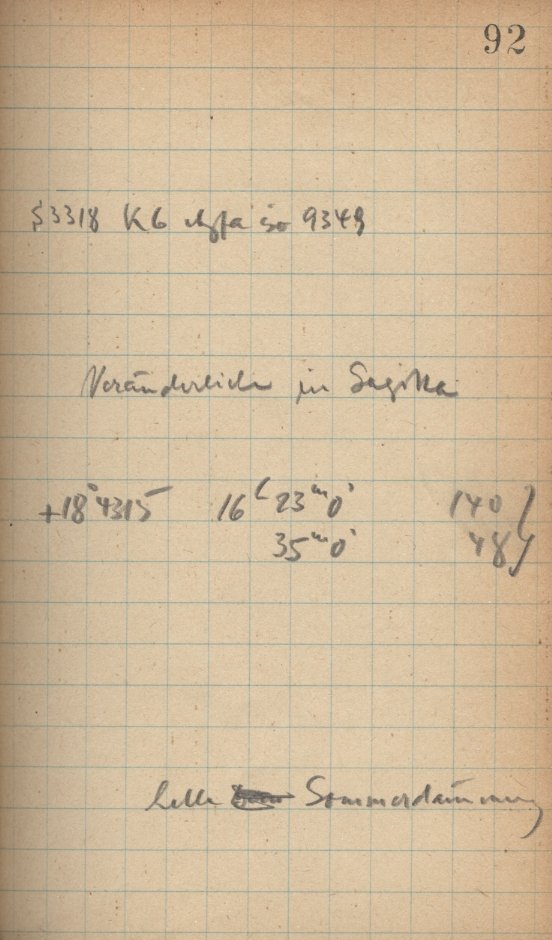 92
S3318 K6 9349
Veränderliche in Sagitta
+18° 4315 16ʰ 23ᵐ 0ˢ 140
35ᵐ 0ˢ 48
helle Sommerdämmerung